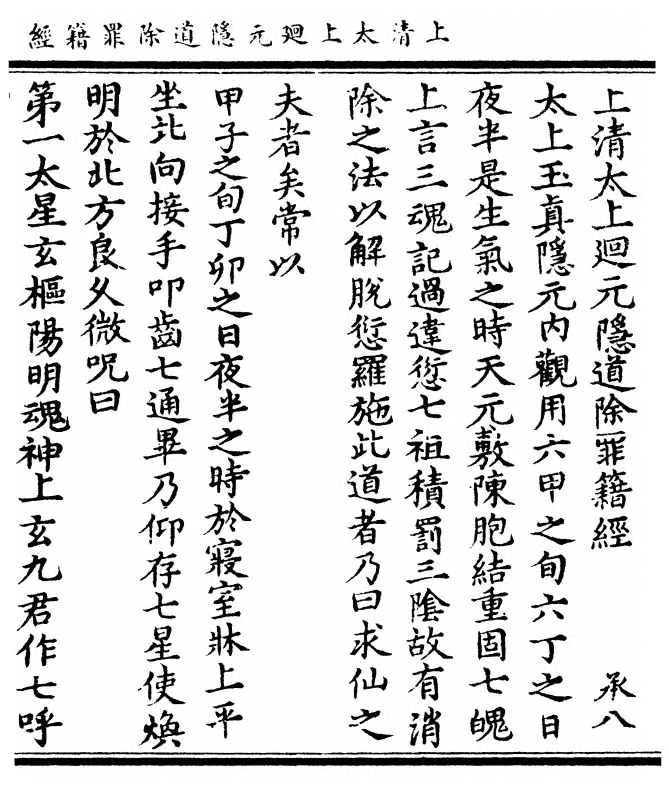 上清太上廻元隱道除罪籍經
上清太上廻元隱道除罪籍經 承八
太上玉真隱元内觀用六甲之旬六丁之日
夜半是生氣之時天元敷陳胞結重固七魄
上言三魂記過違愆七祖積罰三陰故有消
除之法以解脫愆羅施此道者乃曰求仙之
夫者矣常以
甲子之旬丁卯之日夜半之時於寢室牀上平
坐北向接手叩齒七通畢乃仰存七星使煥
明於北方良久微呪曰
第一太星玄樞陽明魂神上玄九君作七呼